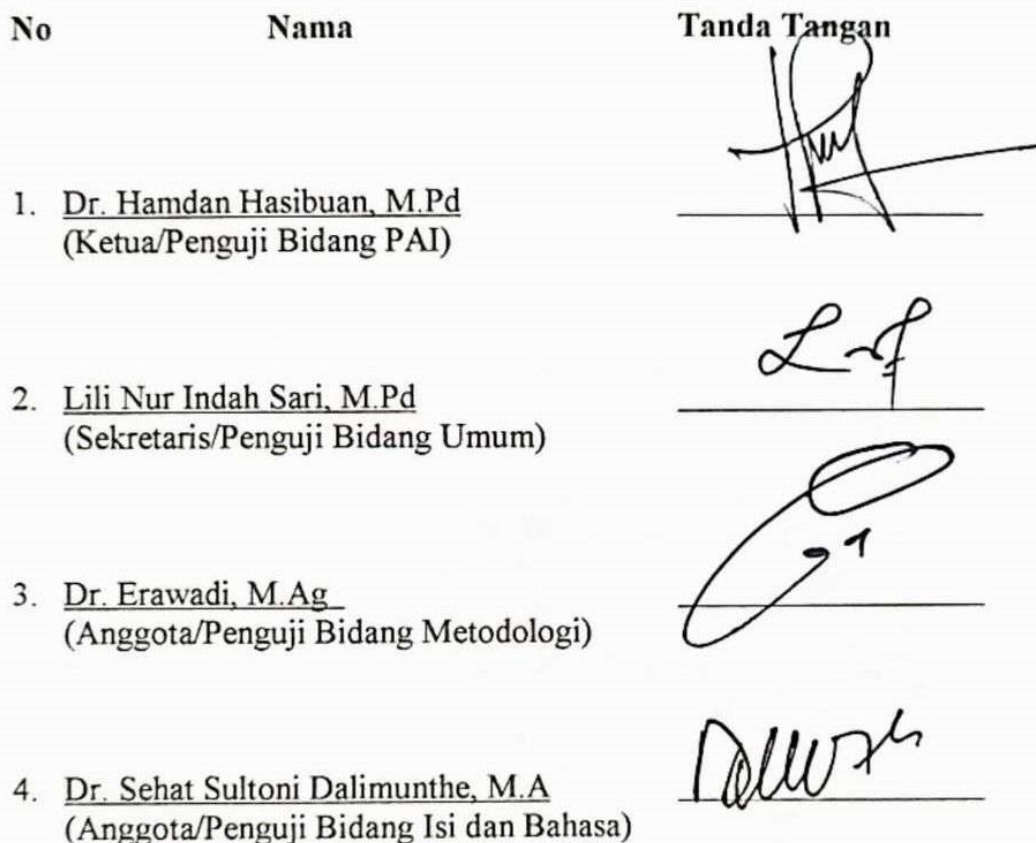 No Nama Tanda Tangan
1. Dr. Hamdan Hasibuan, M.Pd
(Ketua/Penguji Bidang PAI)
2. Lili Nur Indah Sari, M.Pd
(Sekretaris/Penguji Bidang Umum)
3. Dr. Erawadi, M.Ag
(Anggota/Penguji Bidang Metodologi)
4. Dr. Sehat Sultoni Dalimunthe, M.A
(Anggota/Penguji Bidang Isi dan Bahasa)